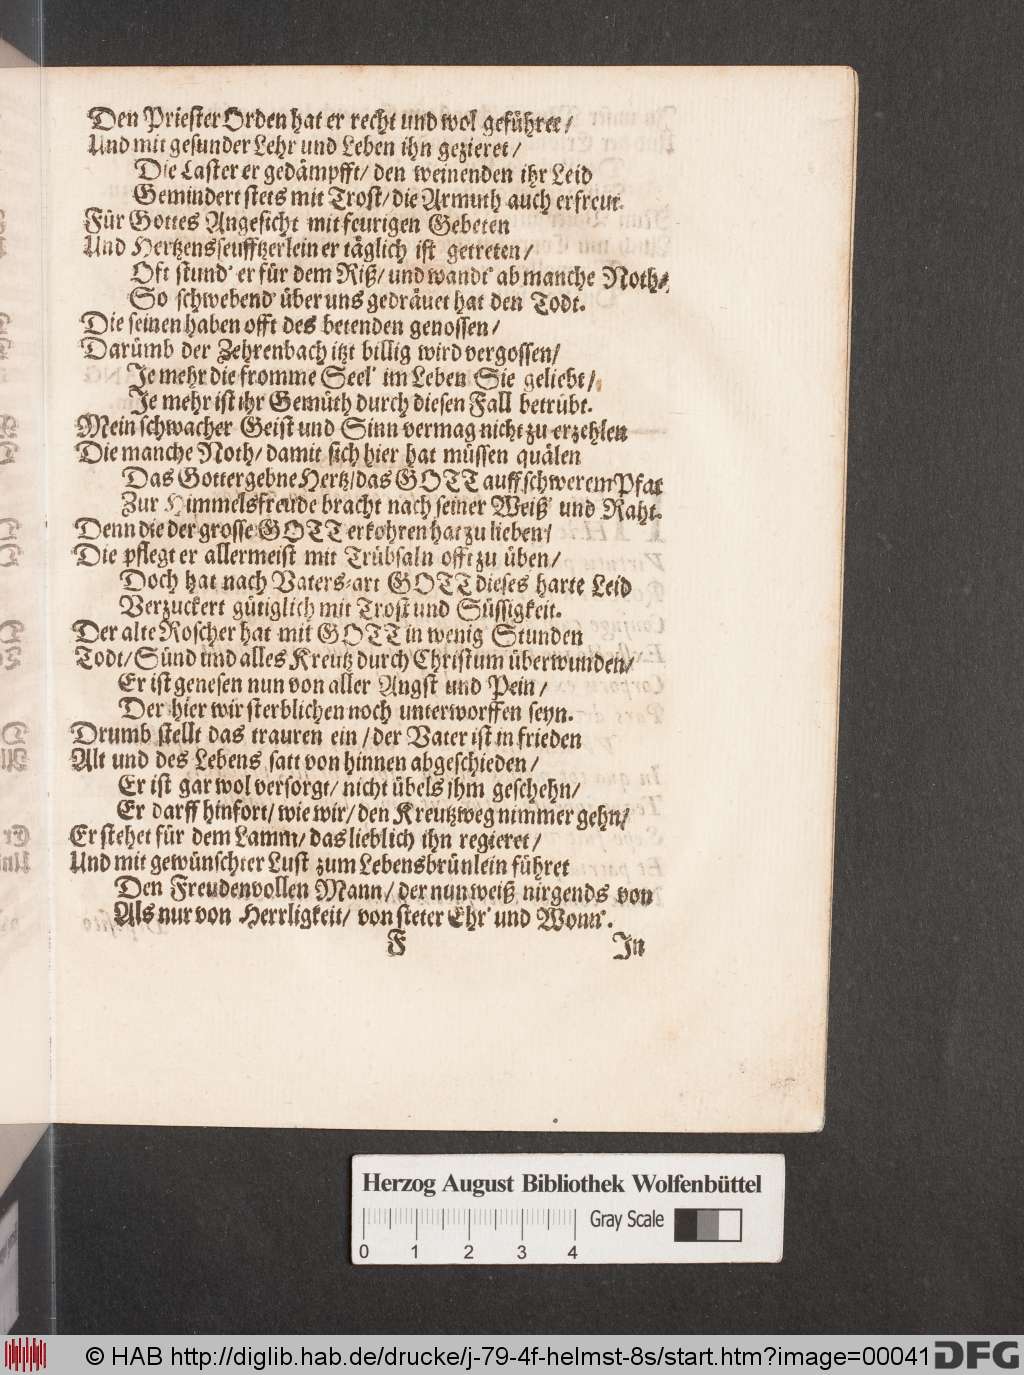 Den Priester Orden hat er recht und wol geführet/
Und mit gesunder Lehr und Leben ihn gezieret/
Die Laster er gedämpfft/ den weinenden ihr Leid
Gemindert stets mit Trost/ die Armuth auch erfreut.
Für Gottes Angesicht mit feurigen Gebeten
Und Hertzensseufftzerlein er täglich ist getreten/
Oft stund' er für dem Riß/ und wandt' ab manche Noth/
So schwebend' über uns gedräuet hat den Todt.
Die seinen haben offt des betenden genossen/
Darümb der Zehrenbach itzt billig wird vergossen/
Je mehr die fromme Seel' im Leben Sie geliebt/
Je mehr ist ihr Gemüth durch diesen Fall betrübt.
Mein schwacher Geist und Sinn vermag nicht zu erzehlen
Die manche Noth/ damit sich hier hat müssen quälen
Das Gottergebne Hertz/ das GOTT auff schwerem Pfat
Zur Himmelsfreude bracht nach seiner Weiß' und Raht.
Denn die der grosse GOTT erkohren hat zu lieben/
Die pflegt er allermeist mit Trübsaln offt zu üben/
Doch hat nach Vaters-art GOTT dieses harte Leid
Verzuckert gütiglich mit Trost und Süssigkeit.
Der alte Roscher hat mit GOTT in wenig Stunden
Todt/ Sünd und alles Kreutz durch Christum überwunden/
Er ist genesen nun von aller Angst und Pein/
Der hier wir sterblichen noch unterworffen seyn.
Drumb stellt das trauren ein/ der Vater ist in frieden
Alt und des Lebens satt von hinnen abgeschieden/
Er ist gar wol versorgt/ nicht übels jhm geschehn/
Er darff hinfort/ wie wir/ den Kreutzweg nimmer gehn/
Er stehet für dem Lamm/ das lieblich ihn regieret/
Und mit gewünschter Lust zum Lebensbrünlein führet
Den Freudenvollen Mann/ der nun weiß nirgends von
Als nur von Herrligkeit/ von steter Ehr' und Wonn'.
F In
Herzog August Bibliothek Wolfenbüttel
Gray Scale
0 1 2 3 4
© HAB http://diglib.hab.de/drucke/j-79-4f-helmst-8s/start.htm?image=00041
DFG